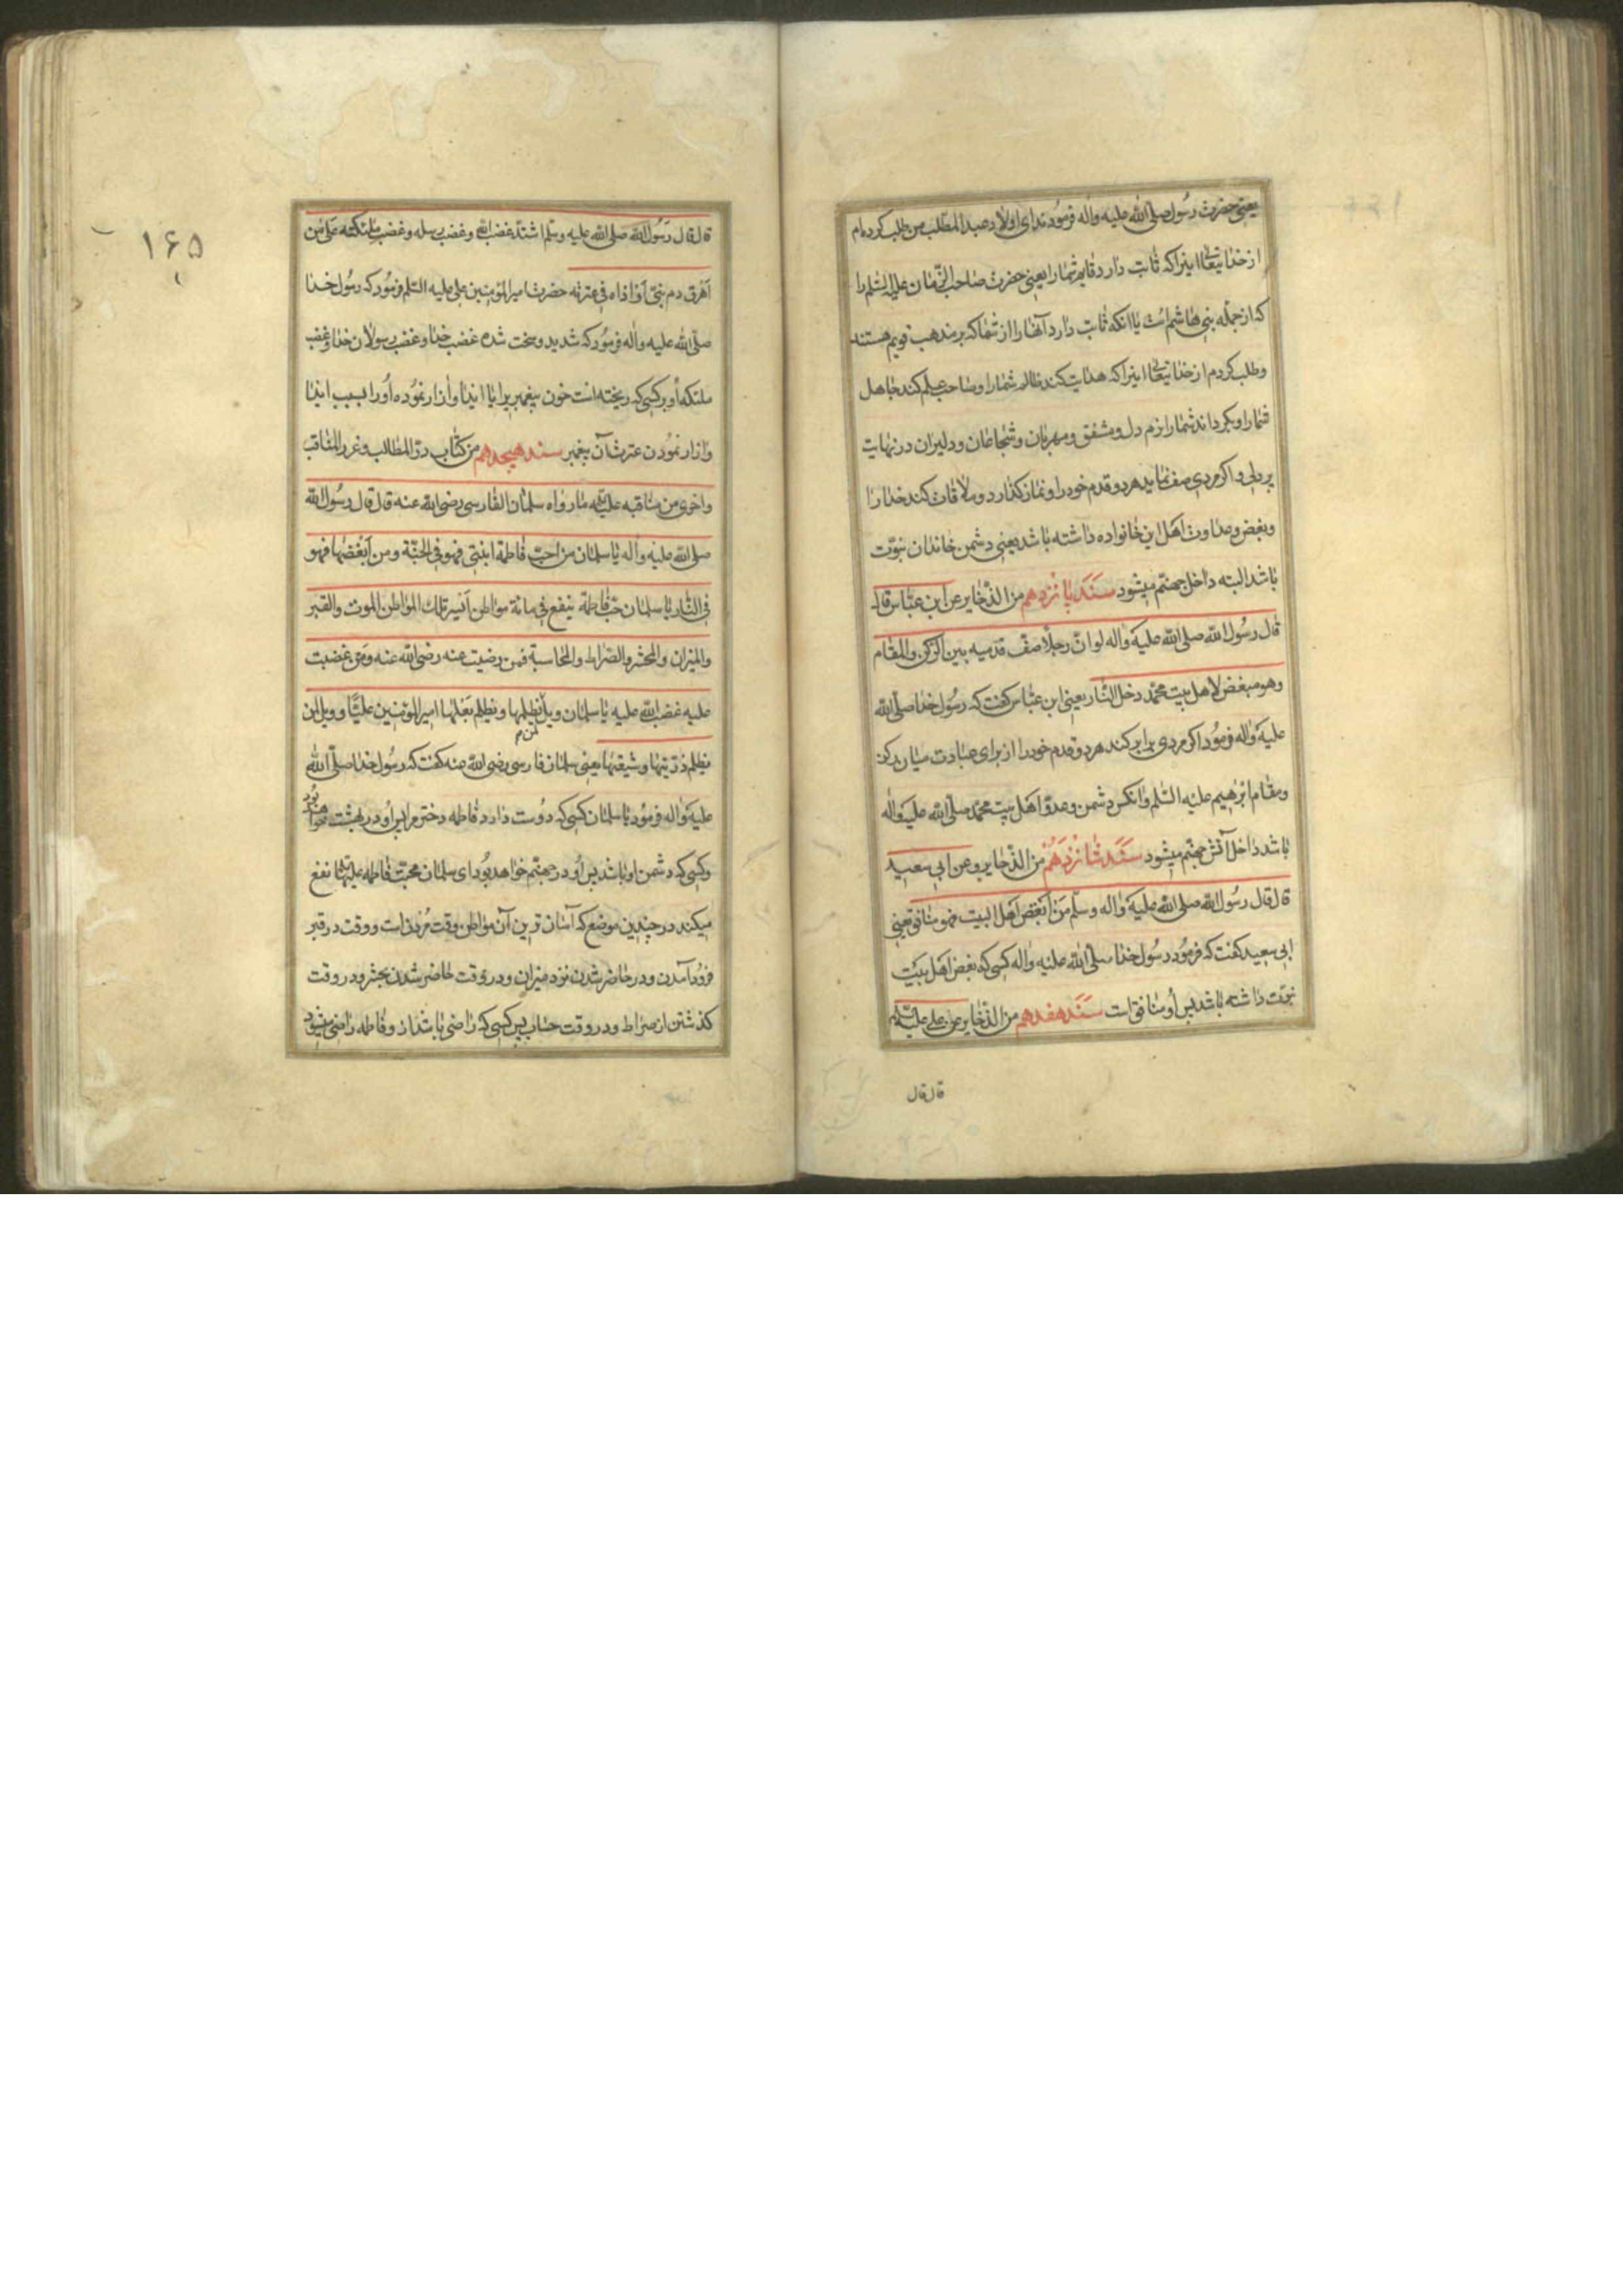 یعنی حضرت رسول صلی الله علیه واله فرمودند ای اولاد عبد المطلب من طلب کرده‌ام
از خدا یتعالی اینرا که ثابت دارد قایم شما را یعنی حضرت صاحب الزمان علیه السلم را
که از جمله بنی هاشم است یا انکه ثابت دارد آنها را از شما که بر مذهب قویم هستند
وطلب کردم از خدا یتعالی اینرا که هدایت کند ظالم شما را وصاحب علم کند جاهل
شما را وبکرداند شما را نرم دل ومشفق ومهربان وشجاعان ودلیران در نهایت
پر دلی واکر مردی صف نماید هر دو قدم خود را ونماز کذارد وملاقات کند خدا را
وبغض وعداوت اهل این خانواده داشته باشد یعنی دشمن خاندان نبوت
باشد البته داخل جهنم میشود سند پانزدهم من الذخایر عن ابن عباس قال
قال رسول الله صلی الله علیه واله لو ان رجلا صف قدمیه بین الرکن والمقام
وهو مبغض لاهل بیت محمد دخل النار یعنی ابن عباس کفت که رسول خدا صلی الله
علیه واله فرمود اکر مردی برابر کند هر دو قدم خود را از برای عبادت میان رکن
ومقام ابرهیم علیه السلم وانکس دشمن وعدو اهل بیت محمد صلی الله علیه واله
باشد داخل آتش جهنم میشود سند شانزدهم من الذخایر وعن ابی سعید
قال قال رسول الله صلی الله علیه واله وسلم من ابغض اهل البیت فهو منافق یعنی
ابی سعید کفت که فرمود رسول خدا صلی الله علیه واله کسی که بغض اهل بیت
نبوت داشته باشد پس او منافق است سند هفدهم من الذخایر عن علی علیه السلم
قال قال
۱۶۵
قال قال رسول الله صلی الله علیه وسلم اشتد غضب الله وغضب رسله وغضب ملئکته علی من
اهرق دم نبی او اذاه فی عترته حضرت امیر المؤمنین علی علیه السلم فرمود که رسول خدا
صلی الله علیه واله فرمود که شدید وسخت شده غضب خدا وغضب رسولان خدا وغضب
ملئکه او بر کسی که ریخته است خون پیغمبر یرا یا ایذا وازار نموده او را بسبب ایذا
وازار نمودن عترت آن پیغمبر سند هیجدهم من کتاب در المطالب وغرر المناقب
واخری من مناقبه علیه السلم ما رواه سلمان الفارسی رضی الله عنه قال قال رسول الله
صلی الله علیه واله یا سلمان من احب فاطمة ابنتی فهو فی الجنة ومن ابغضها فهو
فی النار یا سلمان حب فاطمة ینفع فی مائة مواطن ایسر تلک المواطن الموت والقبر
والمیزان والمحشر والصراط والمحاسبة فمن رضیت عنه رضی الله عنه ومن غضبت
علیه غضب الله علیه یا سلمان ویل لمن یظلمها ویظلم بعلها امیر المؤمنین علیا وویل لمن
یظلم ذریتها وشیعتها یعنی سلمان فارسی رضی الله عنه کفت که رسول خدا صلی الله
علیه واله فرمود یا سلمان کسی که دوست دارد فاطمه دختر مرا پس او در بهشت خواهد بود
وکسی که دشمن او باشد پس او در جهنم خواهد بود ای سلمان محبت فاطمه علیها السلم نفع
میکند در چندین موضع که آسان ترین آن مواطن وقت مردن است ووقت در قبر
فرود آمدن ودر حاضر شدن نزد میزان ودر وقت حاضر شدن بحشر ودر وقت
کذشتن از صراط ودر وقت حساب پس کسی که راضی باشد از و فاطمه راضی میشود